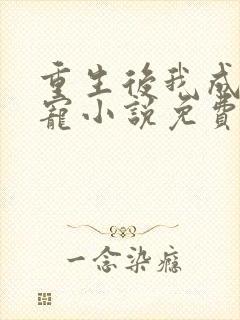 重生后我成
寵小說免費
一念染癮